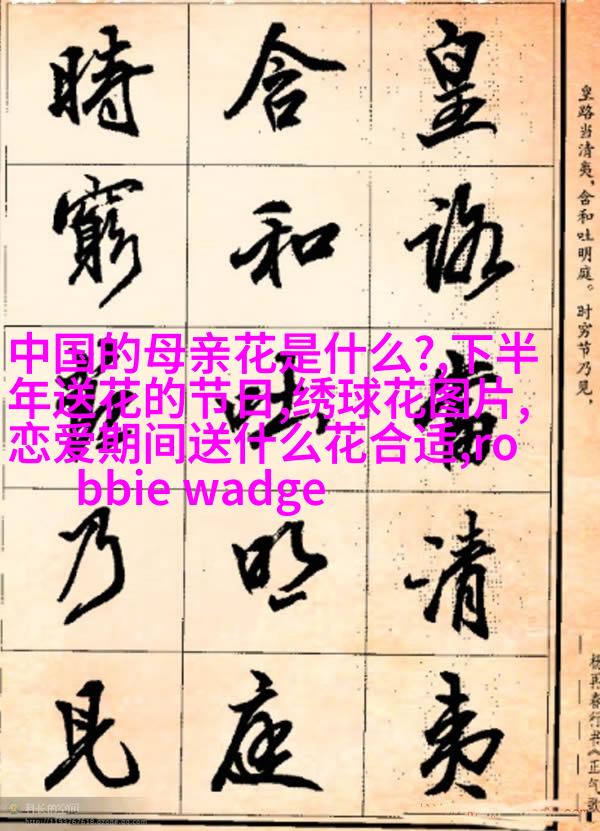 皇路当清夷，含和吐明庭。时穷节乃见，
皇路當清夷
含和吐明庭
時窮節乃見
中国的母亲花是什么?,下半
年送花的节日,绣球花图片,
恋爱期间送什么花合适,ro
bbie wadge
杨再春行书《正气歌
科长的空间